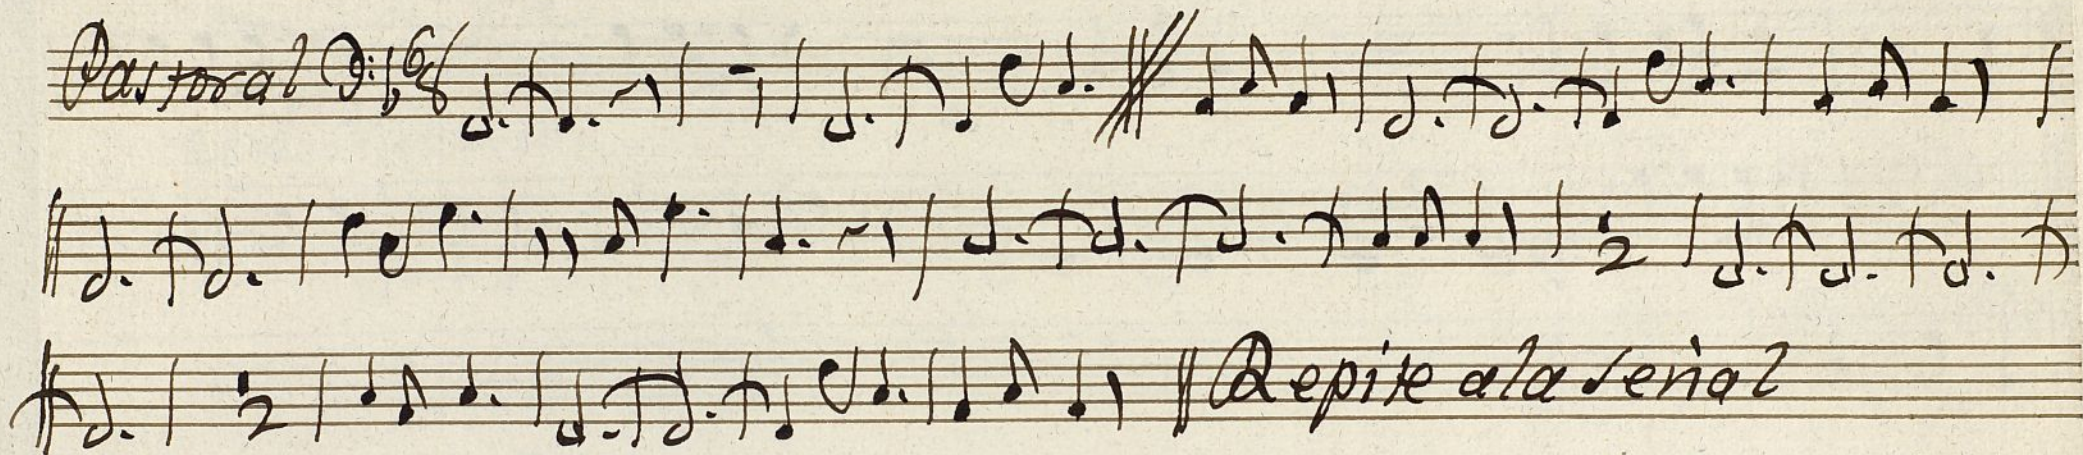 Pastoral 6/8
2
2 Repite ala señal